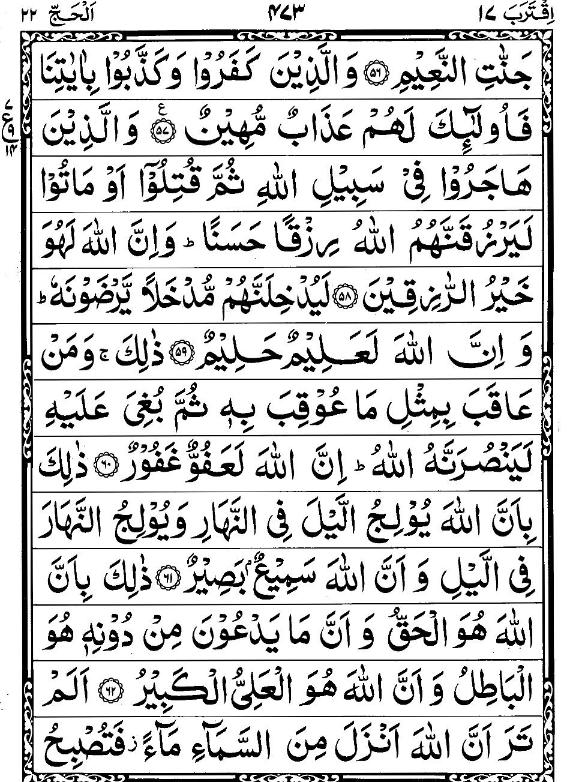 اِقْتَرَبَ ١٧ ٤٧٣ اَلْحَجّ ٢٢
جَنّٰتِ النَّعِيْمِ ﴿٥٦﴾ وَالَّذِيْنَ كَفَرُوْا وَكَذَّبُوْا بِاٰيٰتِنَا
فَاُولٰٓئِكَ لَهُمْ عَذَابٌ مُّهِيْنٌ ﴿٥٧﴾ ع وَالَّذِيْنَ
٧
ع
٩
١٤
هَاجَرُوْا فِيْ سَبِيْلِ اللهِ ثُمَّ قُتِلُوْٓا اَوْ مَاتُوْا
لَيَرْزُقَنَّهُمُ اللهُ رِزْقًا حَسَنًا ؕ وَاِنَّ اللهَ لَهُوَ
خَيْرُ الرّٰزِقِيْنَ ﴿٥٨﴾ لَيُدْخِلَنَّهُمْ مُّدْخَلًا يَّرْضَوْنَهٗ ؕ
وَ اِنَّ اللهَ لَعَلِيْمٌ حَلِيْمٌ ﴿٥٩﴾ ذٰلِكَ ۚ وَمَنْ
عَاقَبَ بِمِثْلِ مَا عُوْقِبَ بِهٖ ثُمَّ بُغِيَ عَلَيْهِ
لَيَنْصُرَنَّهُ اللهُ ؕ اِنَّ اللهَ لَعَفُوٌّ غَفُوْرٌ ﴿٦٠﴾ ذٰلِكَ
بِاَنَّ اللهَ يُوْلِجُ الَّيْلَ فِي النَّهَارِ وَيُوْلِجُ النَّهَارَ
فِي الَّيْلِ وَ اَنَّ اللهَ سَمِيْعٌۢ بَصِيْرٌ ﴿٦١﴾ ذٰلِكَ بِاَنَّ
اللهَ هُوَ الْحَقُّ وَ اَنَّ مَا يَدْعُوْنَ مِنْ دُوْنِهٖ هُوَ
الْبَاطِلُ وَ اَنَّ اللهَ هُوَ الْعَلِيُّ الْكَبِيْرُ ﴿٦٢﴾ اَلَمْ
تَرَ اَنَّ اللهَ اَنْزَلَ مِنَ السَّمَآءِ مَآءً ز فَتُصْبِحُ